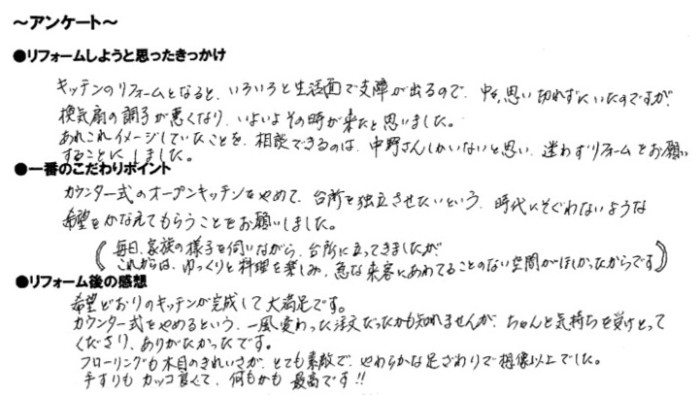 ～アンケート～
●リフォームしようと思ったきっかけ
キッチンのリフォームとなると、いろいろと生活面で支障が出るので、中々、思い切れずにいたのですが、
換気扇の調子が悪くなり、いよいよその時が来たと思いました。
あれこれイメージしていたことを、相談できるのは、中野さんしかいないと思い、迷わずリフォームをお願い
することにしました。
●一番のこだわりポイント
カウンター式のオープンキッチンをやめて、台所を独立させたいという、時代にそぐわないような
希望をかなえてもらうことをお願いしました。
(毎日、家族の様子を伺いながら、台所に立ってきましたが
これからは、ゆっくりと料理を楽しみ、急な来客にあわてることのない空間がほしかったからです)
●リフォーム後の感想
希望どおりのキッチンが完成して大満足です。
カウンター式をやめるという、一風変わった注文だったかも知れませんが、ちゃんと気持ちを受けとって
くださり、ありがたかったです。
フローリングも木目のきれいさが、とても素敵で、やわらかな足ざわりで想像以上でした。
手すりもカッコ良くて、何もかも最高です!!